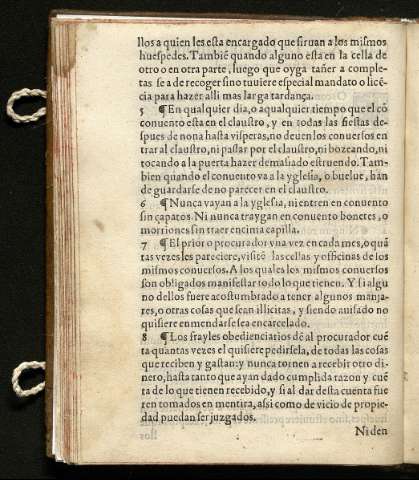 llos a quien les esta encargado que siruan a los mismos
huespedes. Tambiẽ quando alguno esta en la celda de
otro o en otra parte, luego que oyga tañer a comple-
tas se a de recoger sino tuuiere especial mandato o licẽ
cia para hazer alli mas larga tardança.
5 ¶ En qualquier dia, o a qualquier tiempo que el cõ
conuento esta en el claustro, y en todas las fiestas de-
spues de nona hasta visperas, no deuen los conuersos en
trar al claustro, ni passar por el claustro, ni bozeando, ni
tocando a la puerta hazer demasiado estruendo. Tam-
bien quando el conuento va a la yglesia, o buelue, hãn
de guardarse de no parecer en el claustro.
6 ¶ Nunca vayan a la yglesia, ni entren en conuento
sin çapatos. Ni nunca traygan en conuento bonetes, o
morriones sin traer encima capilla.
7 ¶ El prior o procurador vna vez en cada mes, o quã
tas vezes les pareciere, visitẽ las cellas y officinas de los
mismos conuersos. A los quales los mismos conuersos
son obligados manifestar todo lo que tienen. Y si algu
no dellos fuere acostumbrado a tener algunos manja-
res, o otras cosas que sean illicitas, y siendo auisado no
quisiere enmendarse sea encarcelado.
8 ¶ Los frayles obedienciarios dẽ al procurador cuẽ
ta quantas vezes el quisiere pedirsela, de todas las cosas
que reciben y gastan: y nunca tornen a recebir otro di-
nero, hasta tanto que ayan dado cumplida razon y cuẽ
ta de lo que tienen recebido, y si al dar desta cuenta fue
ren tomados en mentira, assi como de vicio de propie-
dad puedan ser juzgados.
Ni den